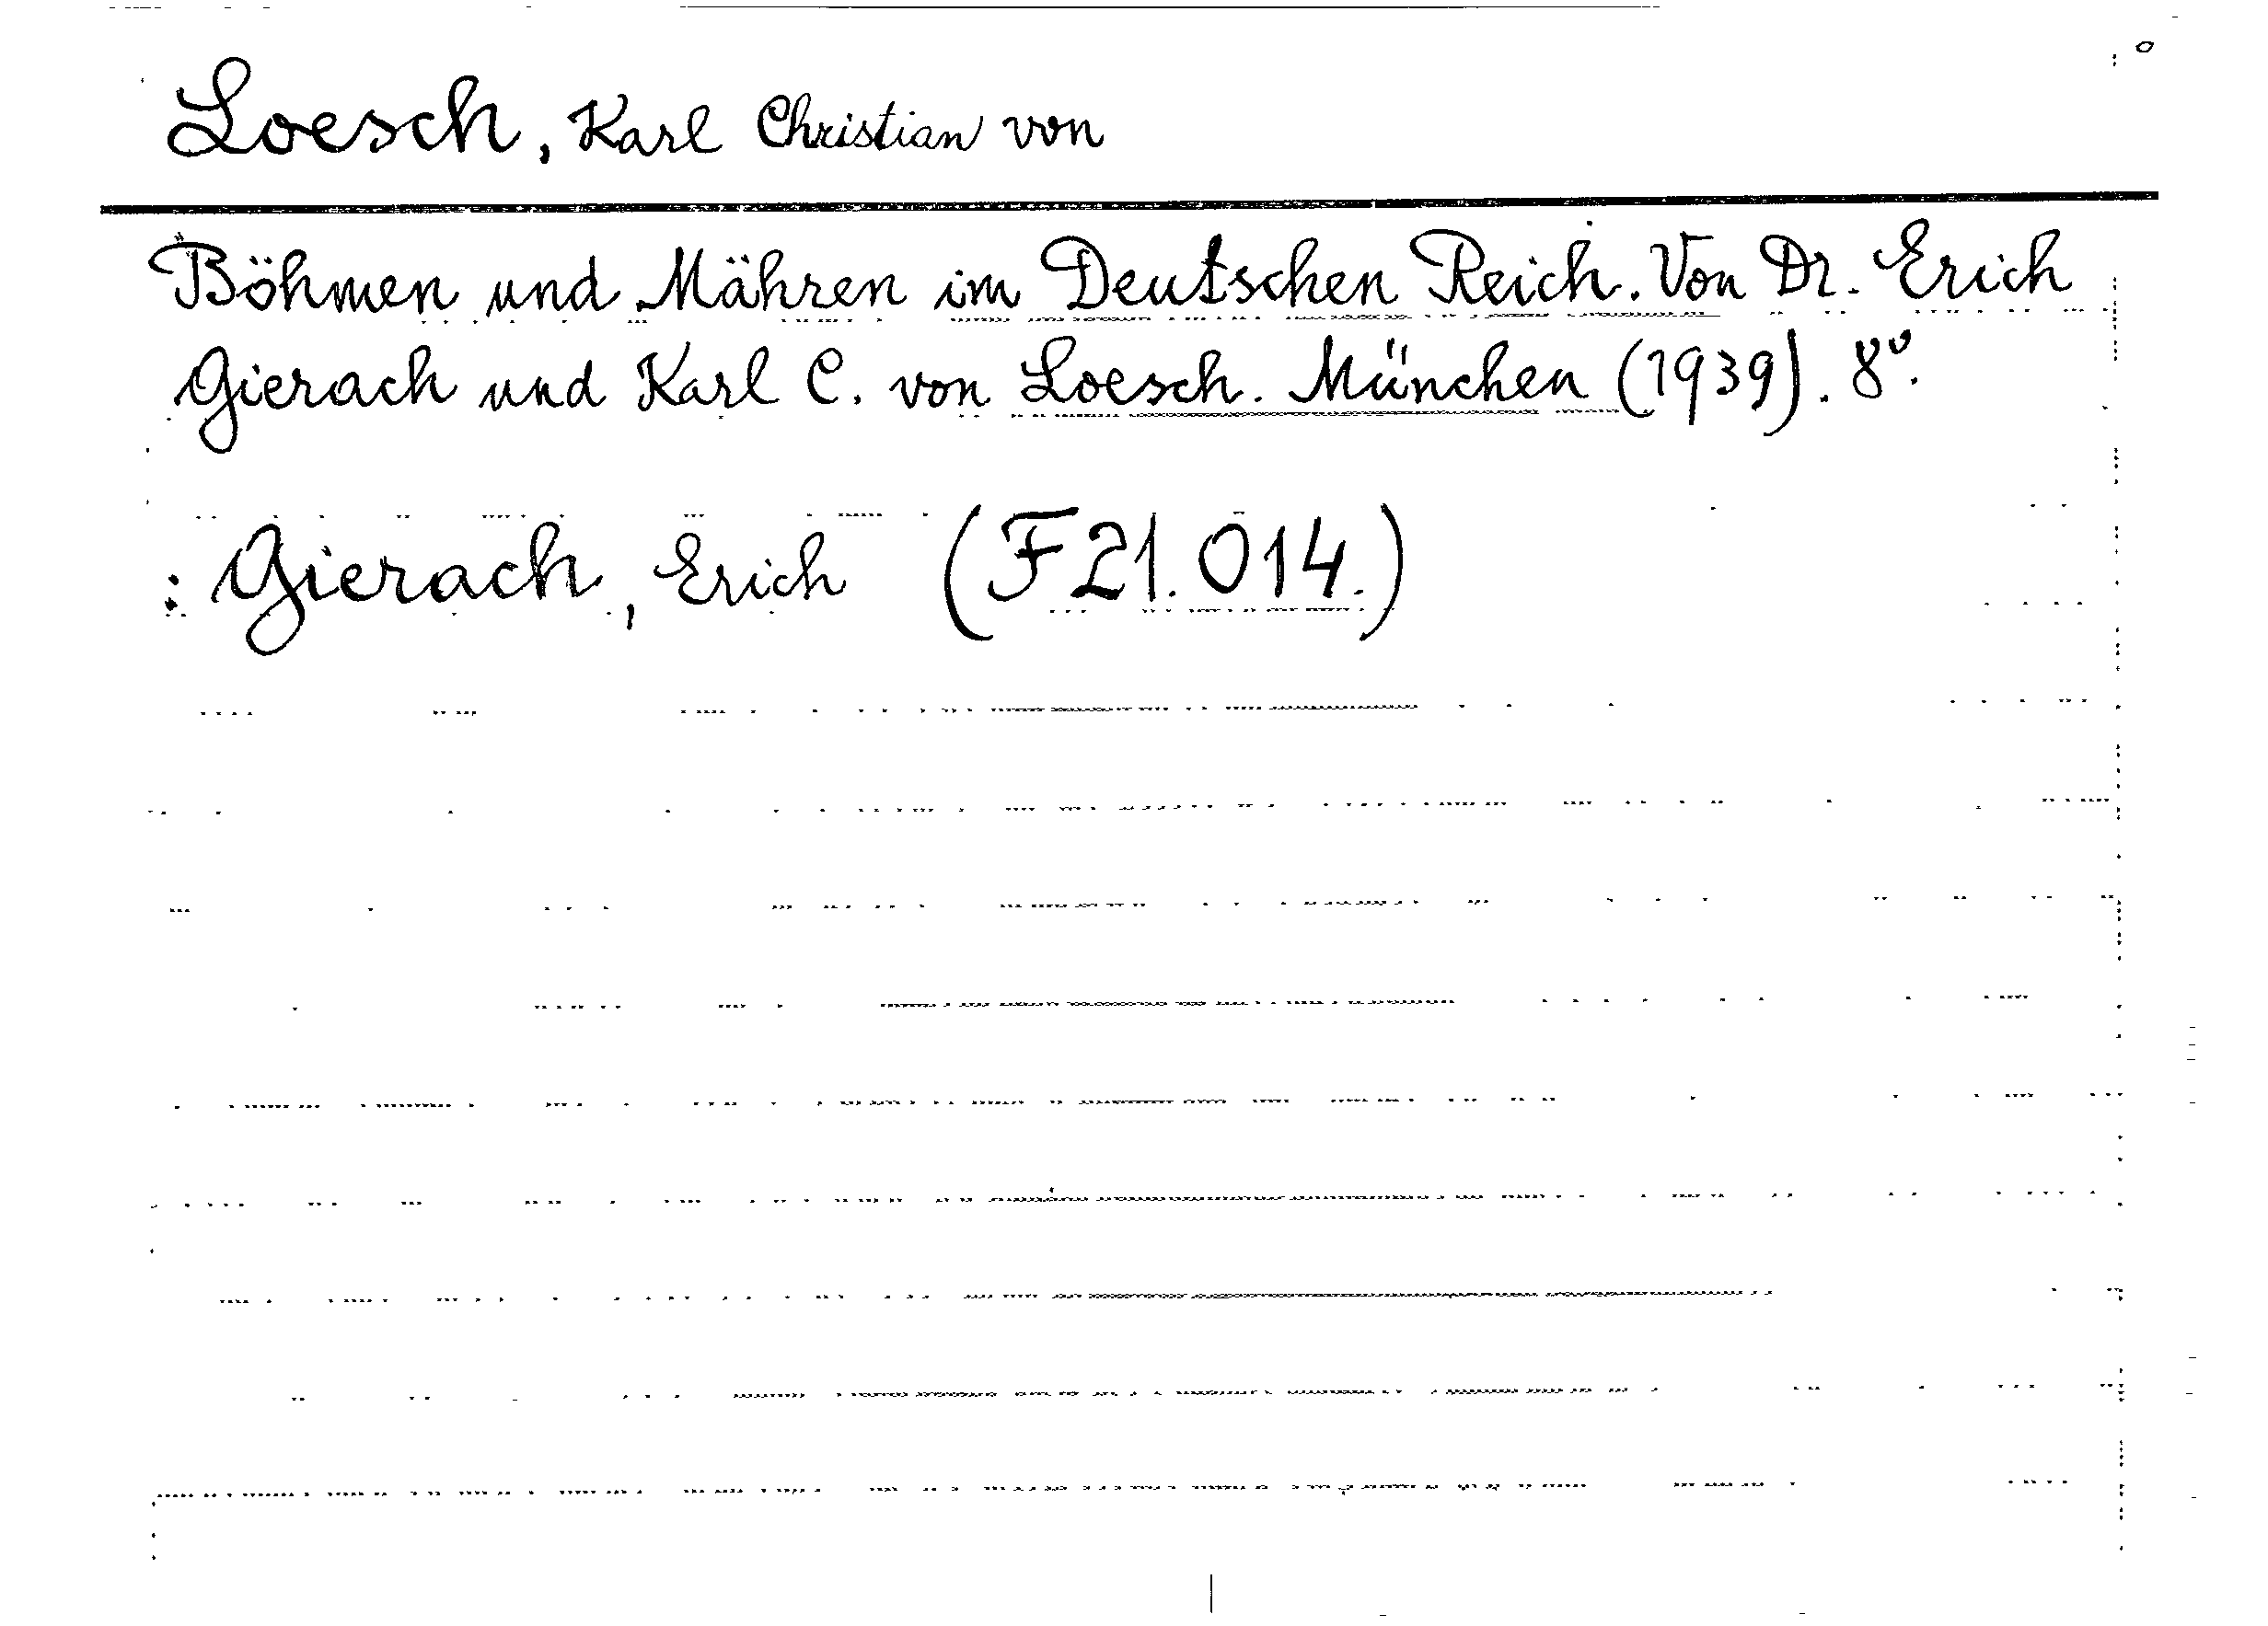 Loesch, Karl Christian von
Böhmen und Mähren im Deutschen Reich. Von Dr. Erich
Gierach und Karl C. von Loesch. München (1939). 8°.
: Gierach, Erich (F21.014.)